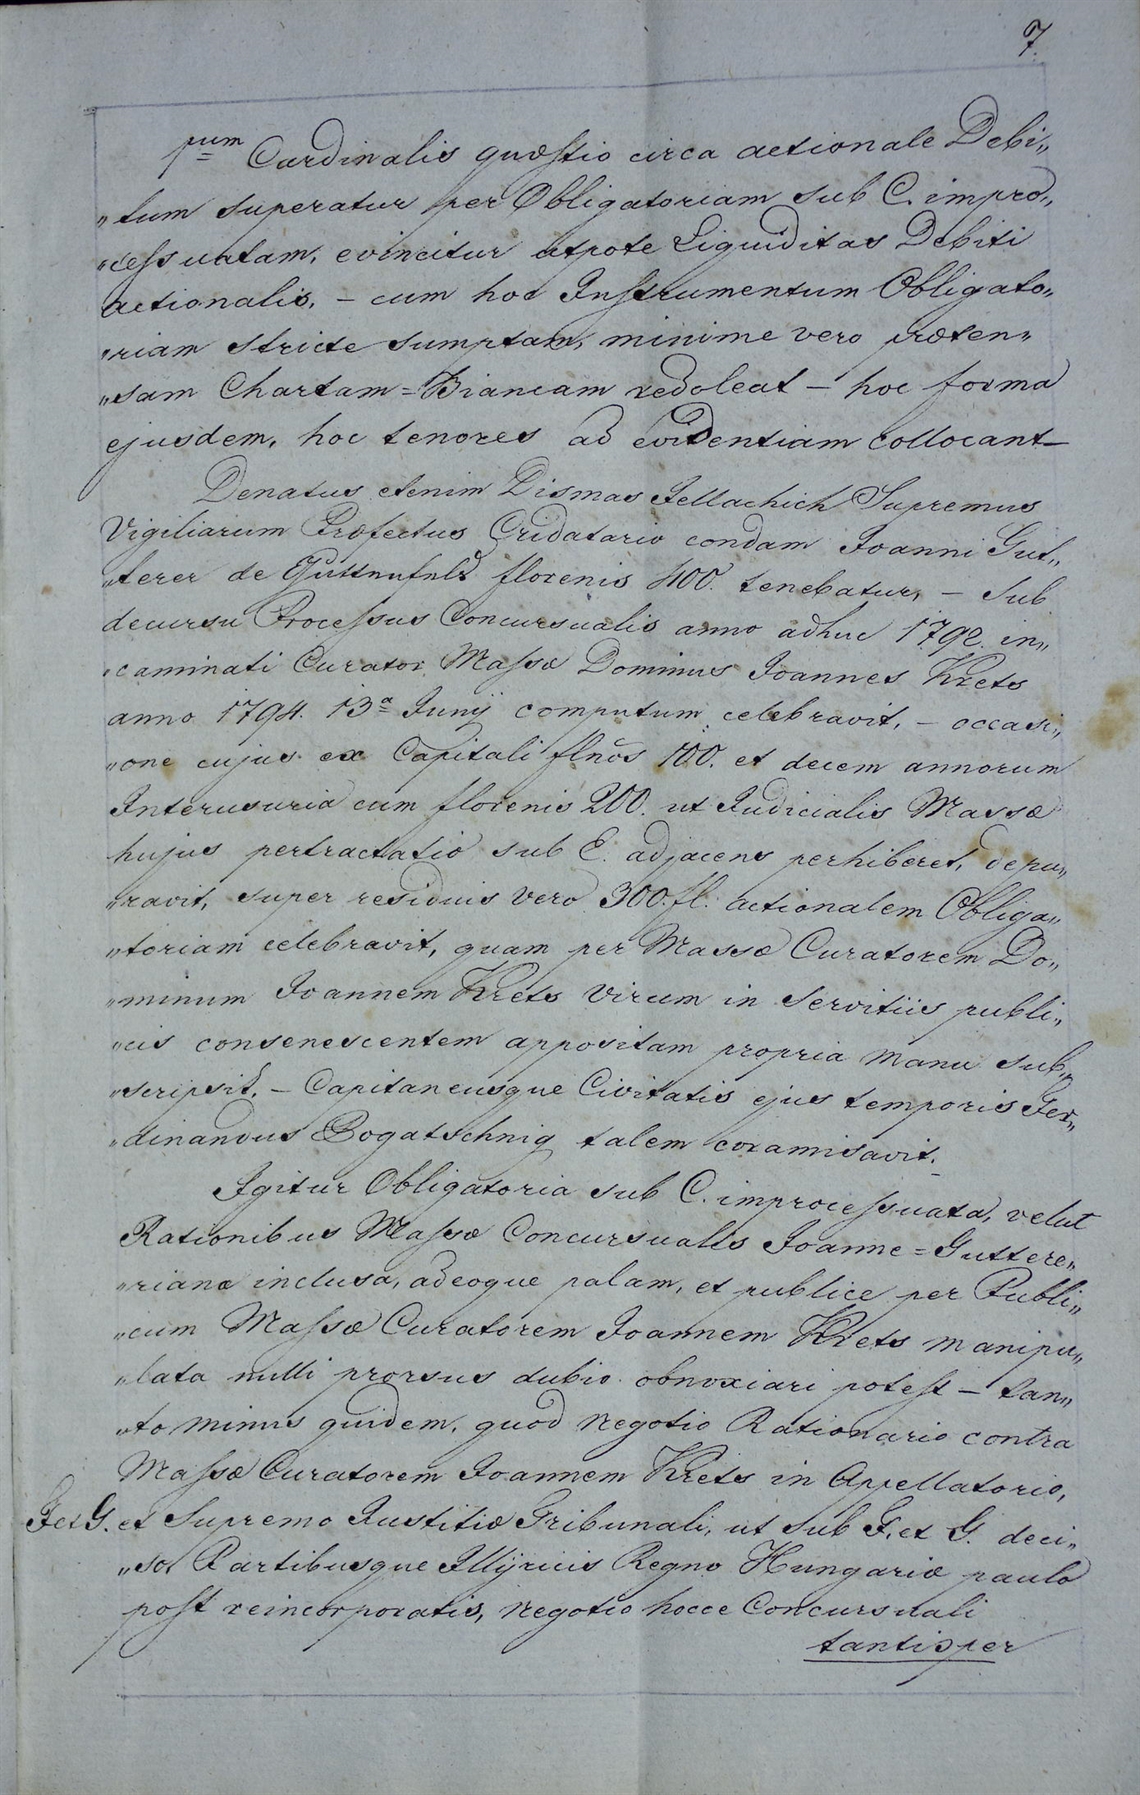 7.
1mum Cardinalis quæstio circa actionale Debi„
„tum superatur per Obligatoriam sub C. impro„
„cessuatam, evincitur utpote Liquiditas Debiti
actionalis, – cum hoc Instrumentum Obligato„
„riam stricte sumptam, minime vero præten„
„sam Chartam=Biancam redoleat – hoc forma
ejusdem, hoc tenores ad evidentiam collocant –
Denatus etenim Dismas Jellachich Supremus
Vigiliarum Præfectus Cridatario condam Joanni Gut„
„terer de Guttenfeld florenis 400. tenebatur, – sub
decursu Processus Concursualis anno adhuc 1792. in„
„caminati Curator Massæ Dominus Joannes Krets
anno 1794. 13a Junij computum celebravit, – occasi„
„one cujus ex Capitali flnos 100. et decem annorum
Interusuria cum florenis 200. ut Judicialis Massæ
hujus pertractatio sub E. adjacens perhiberet, depu„
„ravit, super residuis vero 300 fl. actionalem Obliga„
„toriam celebravit, quam per Massæ Curatorem Do„
„minum Joannem Krets virum in servitiis publi„
„cis consenescentem appositam propria manu sub„
„scripsit. – Capitaneusque Civitatis ejus temporis Fer„
„dinandus Bogatschnig talem coramisavit.
Igitur Obligatoria sub C. improcessuata, velut
Rationibus Massæ Concursualis Joanne=Guttere„
„rianæ inclusa, adeoque palam, et publice per Publi„
„cum Massæ Curatorem Joannem Krets manipu„
„lata nulli prorsus dubio obnoxiari potest – tan„
„to minus quidem, quod negotio Rationario contra
Massæ Curatorem Joannem Krets in Appellatorio,
F et G. et Supremo Justitiæ Tribunali, ut sub F. et G. deci„
„so, Partibusque Illyricis Regno Hungariæ paulo
post reincorporatis, negotio hocce Concursuali
tantisper